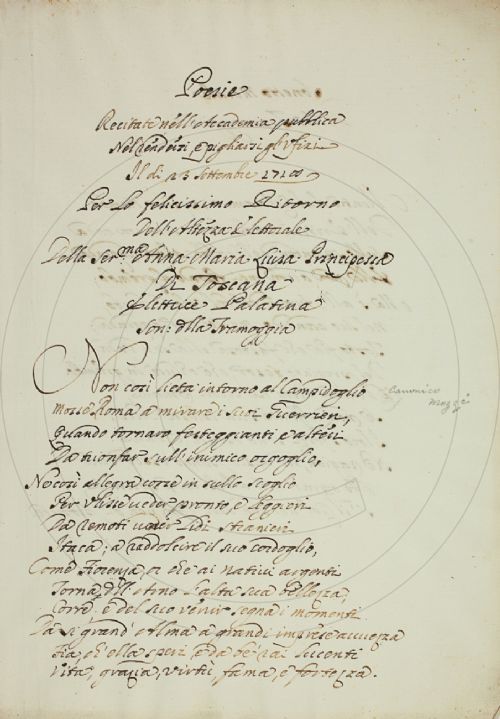 Poesie
Recitate nell'Accademia pubblica
Nel rendersi, e pigliarsi gli Ufizi
Il dì 3 Settembre 1718
Per lo felicissimo Ritorno
Dell'Altezza Elettorale
Della Ser.ma Anna Maria Luisa Principessa
Di Toscana
Elettrice Palatina
Son: della Tramoggia
Non così lieta intorno al Campidoglio
Mosse Roma a mirare i suoi Guerrieri,
Quando tornaro festeggianti e alteri
Da trionfar sull'inimico orgoglio,
Nè così allegra corse in sullo scoglio
Per Ulisse veder pronto, e leggieri
Da remoti Lidi Stranieri
Itaca; a raddolcire il suo cordoglio,
Come Fiorenza, or che ai nativi argenti
Torna dell'Arno l'alta sua Bellezza,
Corre, e del suo venir segna i momenti
Da sì grand'Alma a grandi imprese avvezza
Fia, ch'ella speri, e da be' rai lucenti
Vita, grazia, virtù, fama, e fortezza.
Canonico